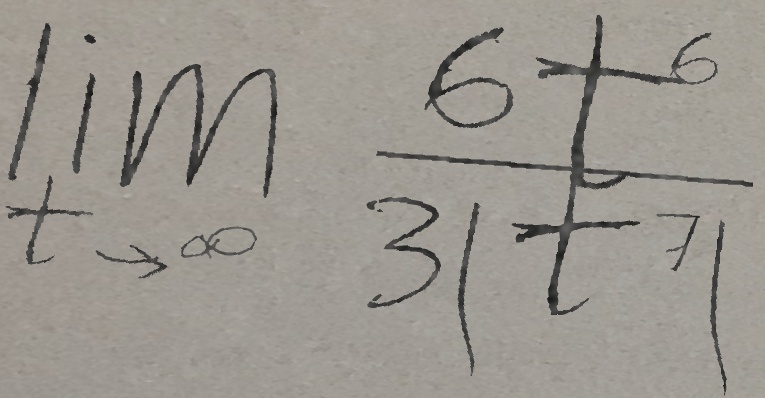 lim t→∞ 6t^6 / 3|t^7|